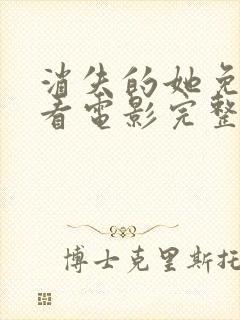 消失的她免
看電影完整
博士克里斯托